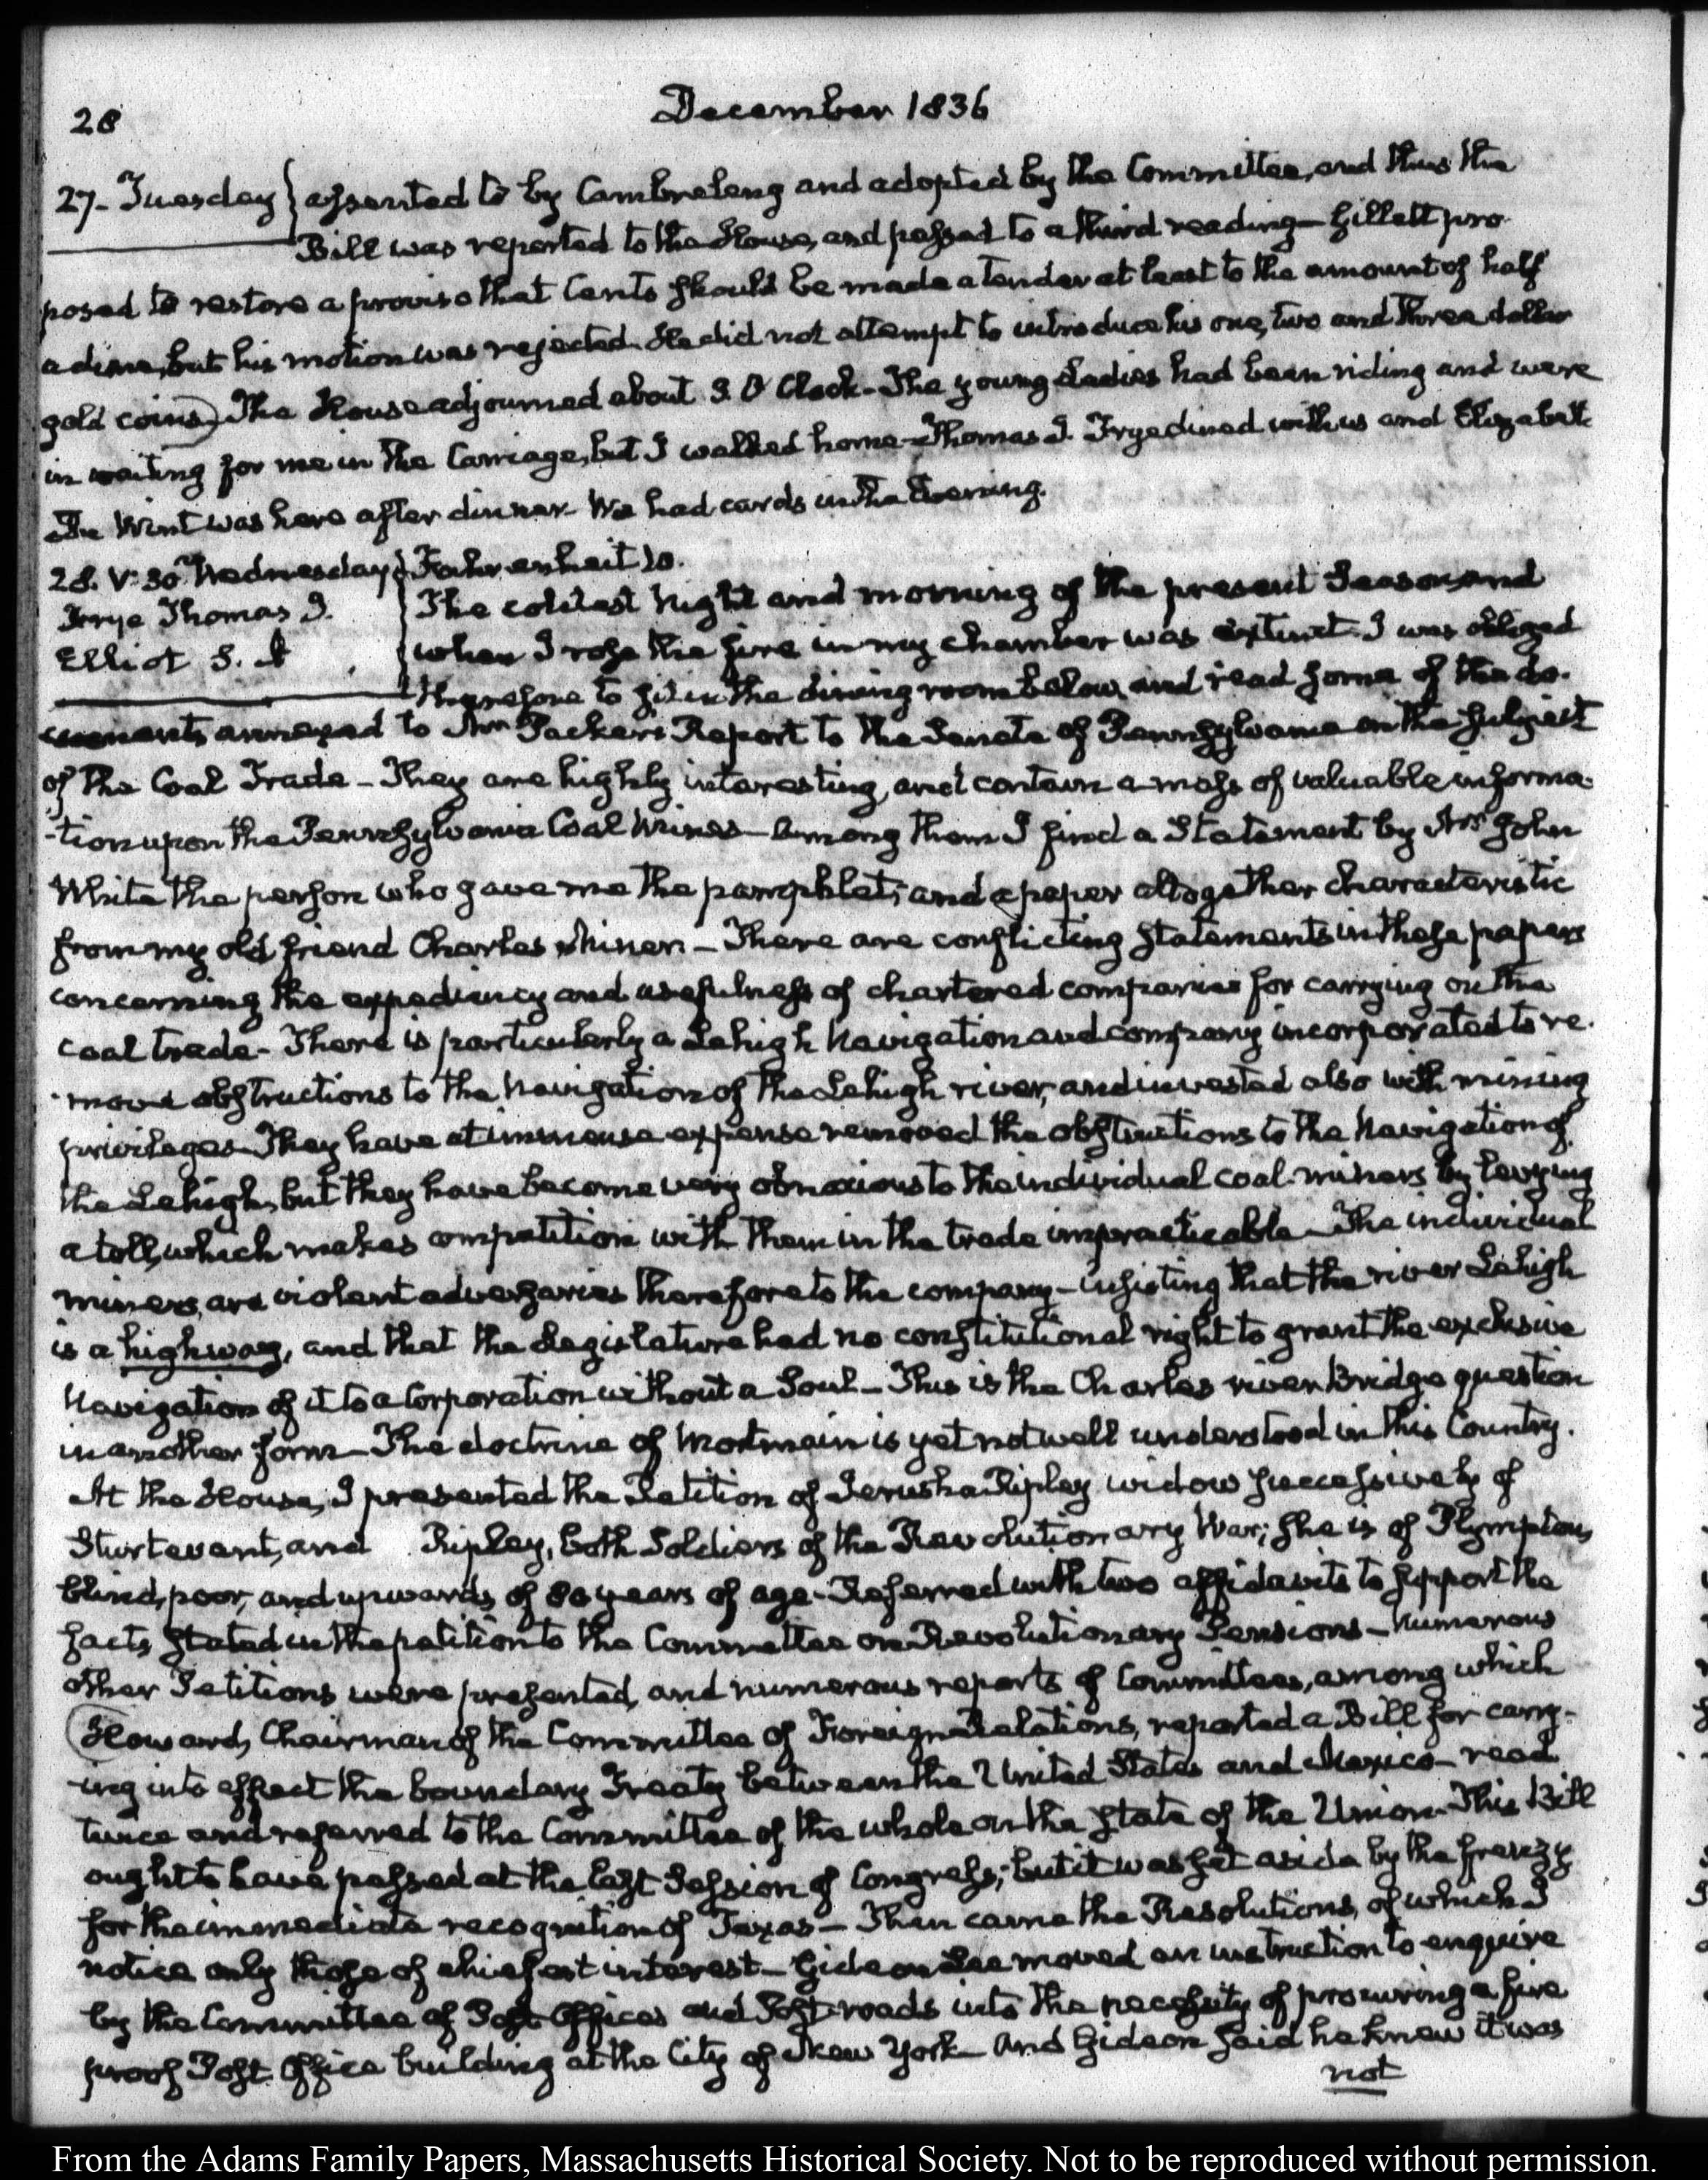 28 December 1836
27. Tuesday } assented to by Cambreleng and adopted by the Committee, and thus the
Bill was reported to the House, and passed to a third reading — Gillett pro-
posed to restore a proviso that Cents should be made a tender at least to the amount of half
a dime, but his motion was rejected. He did not attempt to introduce his one, two and three dollar
gold coins) The House adjourned about 3. O'Clock. The young Ladies had been riding and were
in waiting for me in the Carriage, but I walked home. Thomas J. Frye dined with us and Elizabeth
De Wint was here after dinner. We had cards in the Evening.
28. V:30 Wednesday } Fahrenheit 10.
Frye Thomas J. The coldest night and morning of the present Season, and
Elliot S. A when I rose the fire in my chamber was extinct. I was obliged
therefore to sit in the dining room below, and read some of the do-
cuments annexed to Mr Packer's Report to the Senate of Pennsylvania on the subject
of the Coal Trade — They are highly interesting, and contain a mass of valuable informa-
-tion upon the Pennsylvania Coal Mines — Among them I find a Statement by Mr John
White the person who gave me the pamphlet; and a paper altogether characteristic
from my old friend Charles Miner. — There are conflicting statements in these papers
concerning the expediency and usefulness of chartered companies for carrying on the
coal trade — There is particularly a Lehigh Navigation and company incorporated to re-
-move obstructions to the Navigation of the Lehigh river, and invested also with mining
privileges. They have at immense expense removed the obstructions to the Navigation of
the Lehigh, but they have become very obnoxious to the individual coal-miners by levying
a toll, which makes competition with them in the trade impracticable — The individual
miners, are violent adversaries therefore to the company — insisting that the river Lehigh
is a highway, and that the Legislature had no constitutional right to grant the exclusive
Navigation of it to a Corporation without a Soul — This is the Charles river Bridge question
in another form — The doctrine of Mortmain is yet not well understood in this Country.
At the House, I presented the Petition of Jerusha Ripley widow successively of
Sturtevant, and Ripley, both Soldiers of the Revolutionary War; she is of Plympton,
blind, poor, and upwards of 80 years of age. Referred with two affidavits to support the
facts stated in the petition to the Committee on Revolutionary Pensions — Numerous
other Petitions were presented, and numerous reports of Committees, among which
(Howard, Chairman of the Committee of Foreign Relations, reported a Bill for carry-
ing into effect the boundary Treaty between the United States and Mexico — read
twice and referred to the Committee of the whole on the state of the Union. This Bill
ought to have passed at the last Session of Congress; but it was set aside by the frenzy
for the immediate recognition of Texas — Then came the Resolutions, of which I
notice only those of chiefest interest — Gideon Lee moved an instruction to enquire
by the Committee of Post Offices and Post roads into the necessity of procuring a fire
proof Post Office building at the City of New York — And Gideon said he knew it was
not
From the Adams Family Papers, Massachusetts Historical Society. Not to be reproduced without permission.